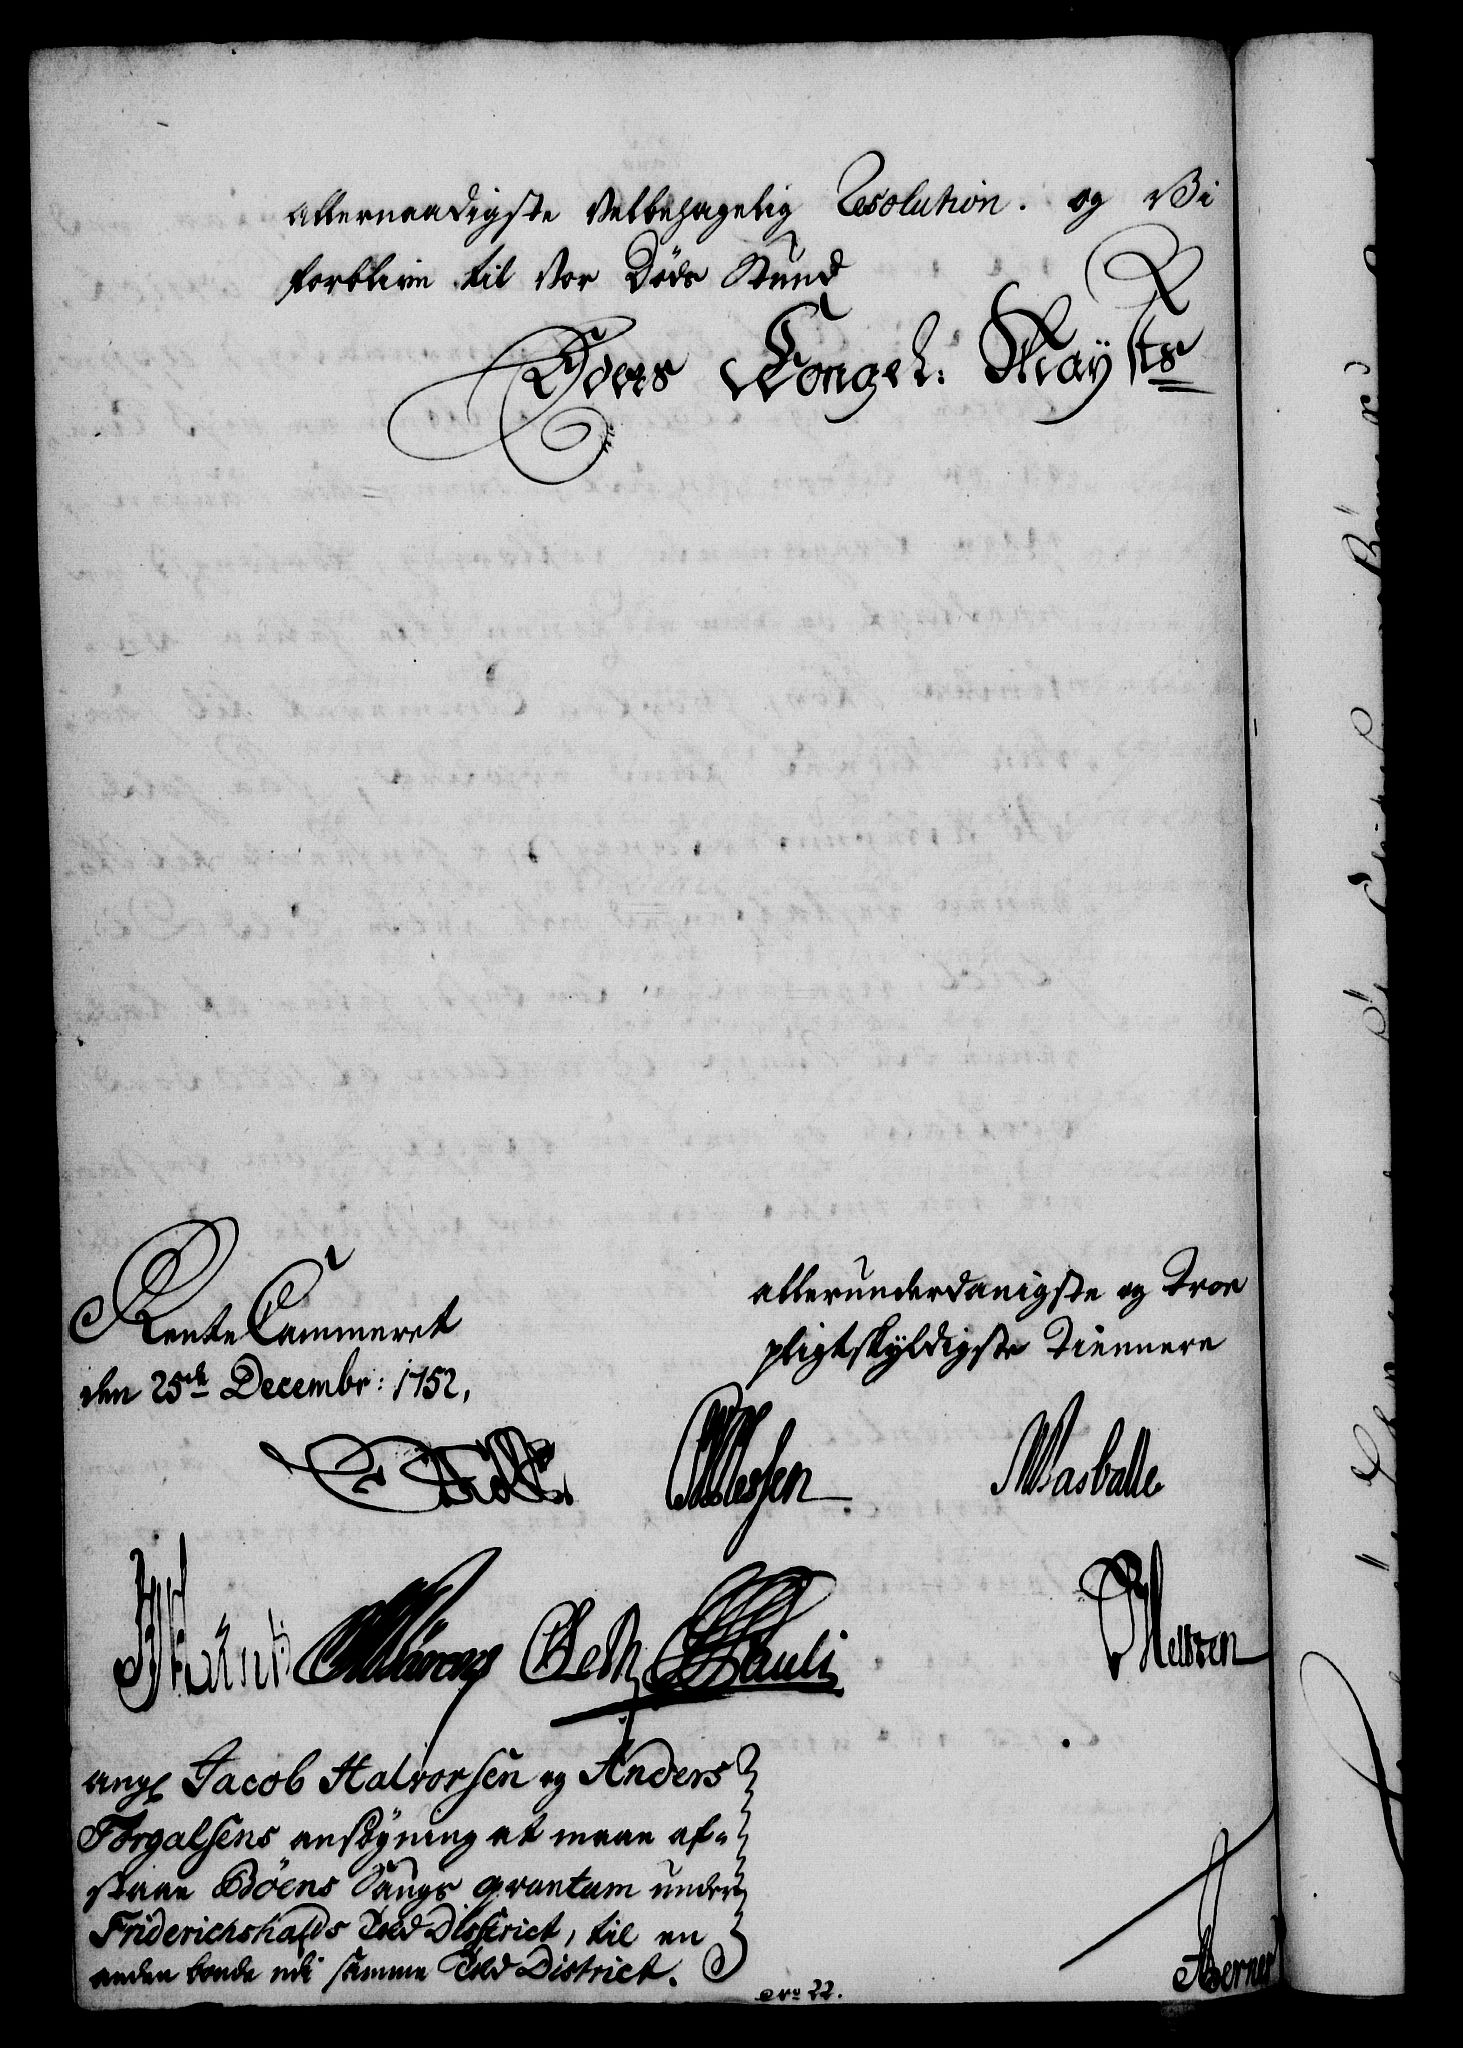 allernaadigste Velbehagelig Resolution. og Vi
forblive til Vor Døds Stund
Eders Kongel: Mayts
RenteCammeret
den 25de Decembr: 1752,
allerunderdanigste og Troe
pligtskyldigste Tiennere
Wasballe
Pauli
ang: Jacob Halvorsen og Anders
Torgalsens ansøgning at maae af-
staae Bøens Saugs qvantum under
Friderichshalds Told District, til en
anden boende udi samme Told District.
No 22.
Berner